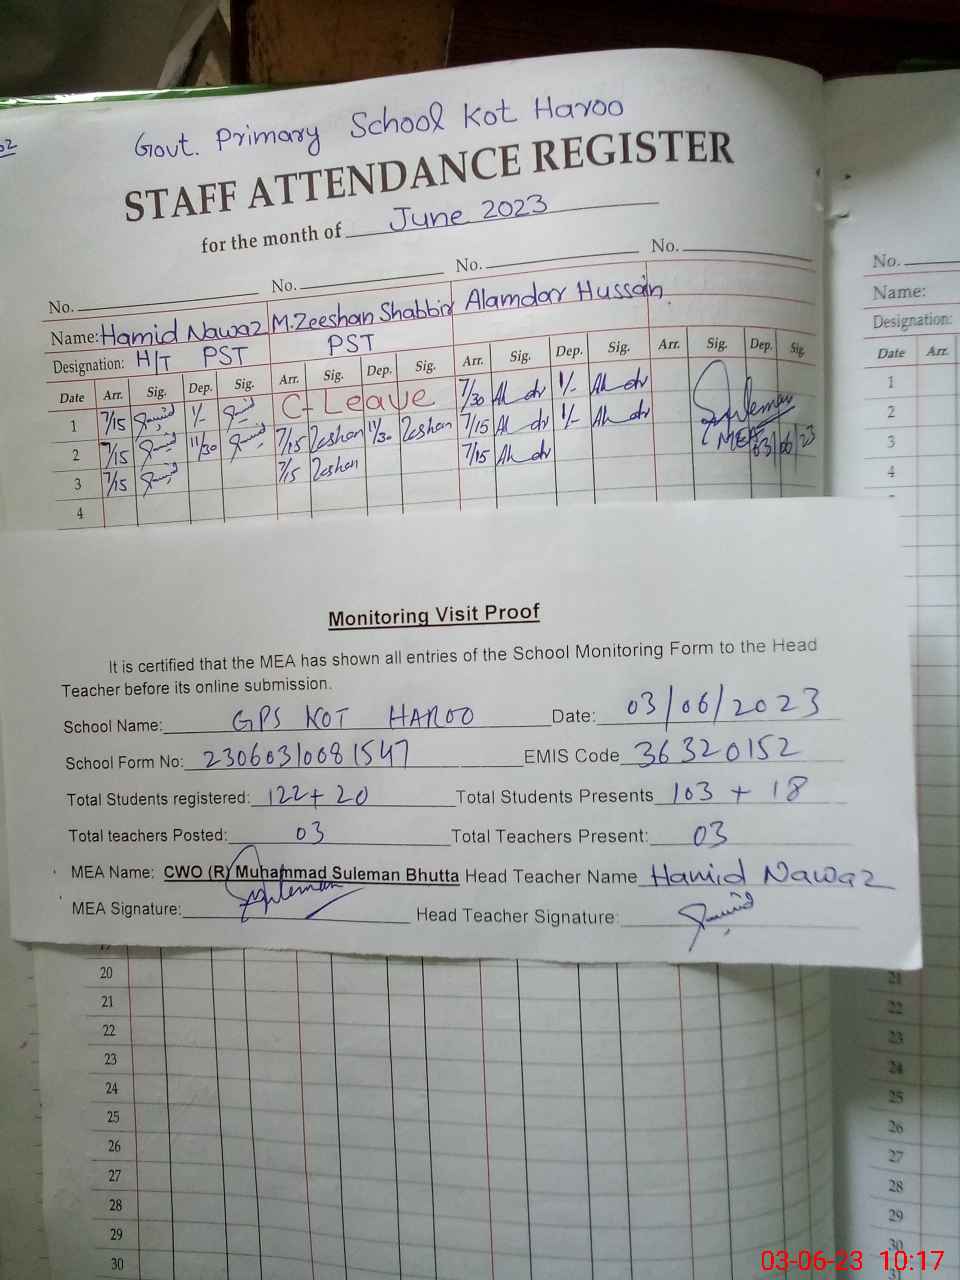 Govt. Primary School Kot Haroo
STAFF ATTENDANCE REGISTER
for the month of June 2023
No. No. No. No.
Name: Hamid Nawaz M.Zeeshan Shabbir Alamdar Hussain.
Designation: H/T PST PST
Date Arr. Sig. Dep. Sig. Arr. Sig. Dep. Sig. Arr. Sig. Dep. Sig. Arr. Sig. Dep. Sig.
1 7/15 1/- C-Leave 7/30 1/-
2 7/15 11/30 7/15 Zeshan 11/30 Zeshan 7/15 1/-
3 7/15 7/15 Zeshan 7/15
4
Suleman
MEA
03/06/23
Monitoring Visit Proof
It is certified that the MEA has shown all entries of the School Monitoring Form to the Head
Teacher before its online submission.
School Name: GPS KOT HAROO Date: 03/06/2023
School Form No: 2306031008 1547 EMIS Code 36320152
Total Students registered: 122+20 Total Students Presents 103 + 18
Total teachers Posted: 03 Total Teachers Present: 03
MEA Name: CWO (R) Muhammad Suleman Bhutta Head Teacher Name Hamid Nawaz
MEA Signature: Suleman Head Teacher Signature:
20
21
22
23
24
25
26
27
28
29
30
No.
Name:
Designation:
Date Arr.
1
2
3
4
21
22
23
24
25
26
27
28
29
30
03-06-23 10:17